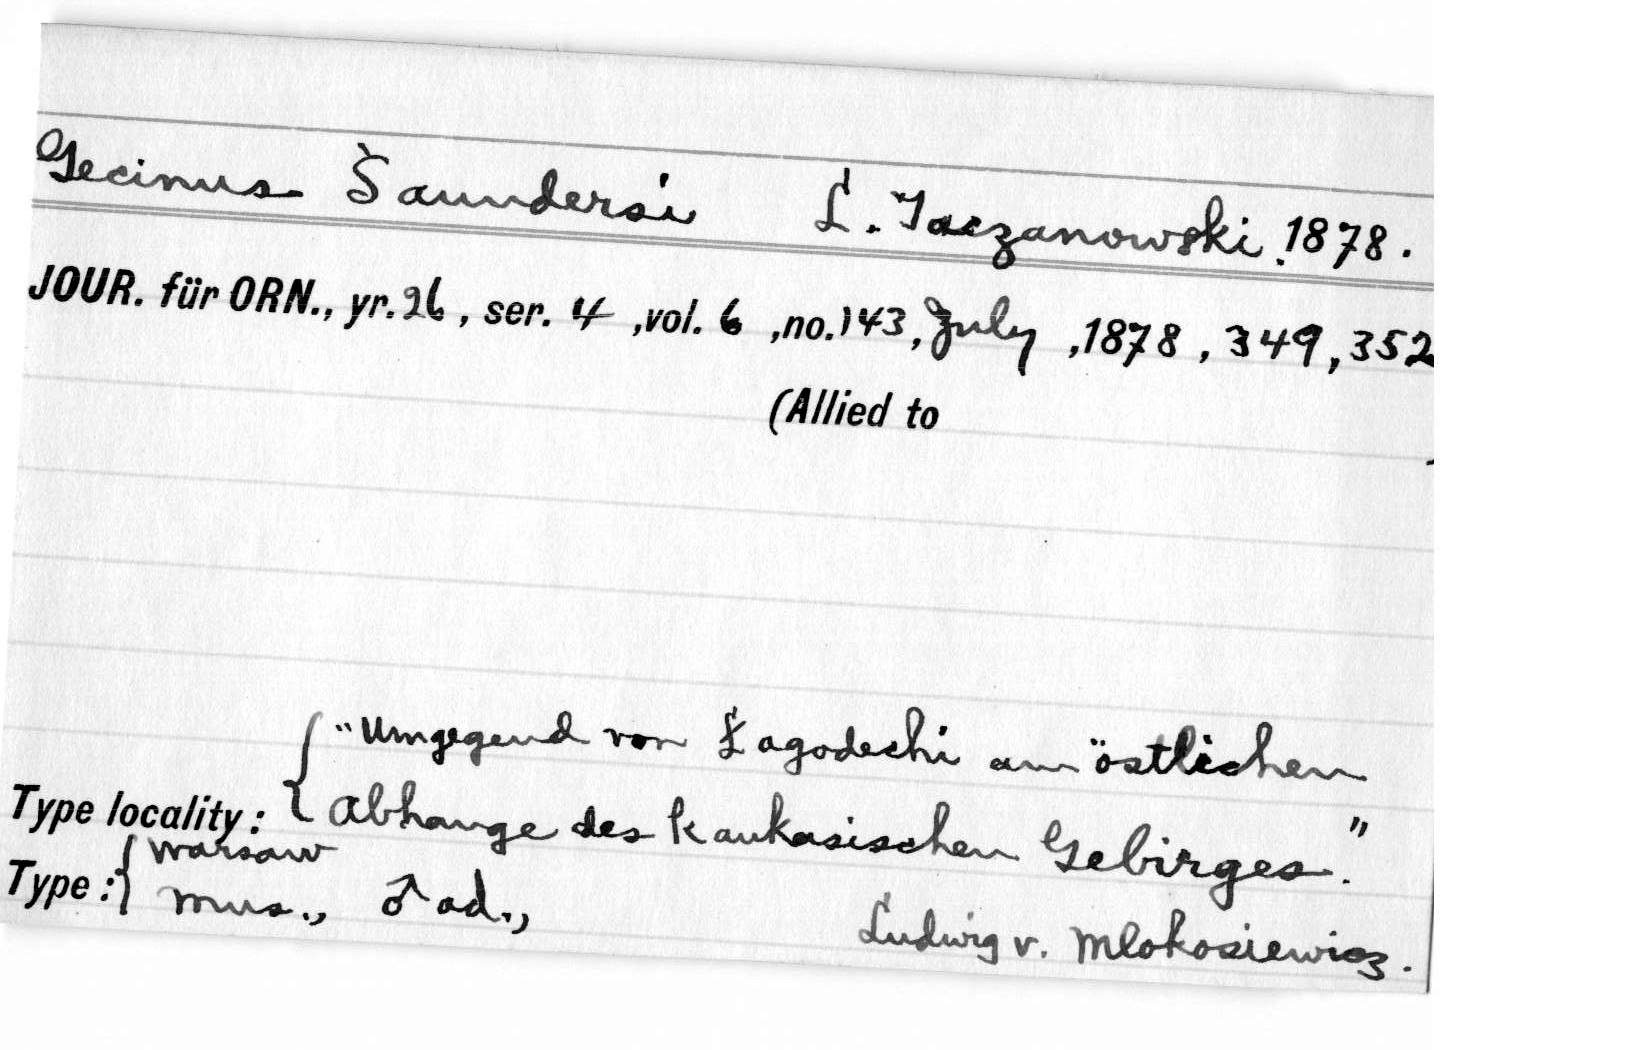 Gecinus Saundersi L. Taczanowski 1878.
JOUR. für ORN., yr. 26, ser. 4, vol. 6, no. 143, July, 1878, 349, 352
(Allied to
{ "Umgegend von Lagodechi am östlichen
Type locality: Abhange des Kaukasischen Gebirges."
Type: { Warsaw
mus., ♂ ad., Ludwig v. Mlokosiewicz.